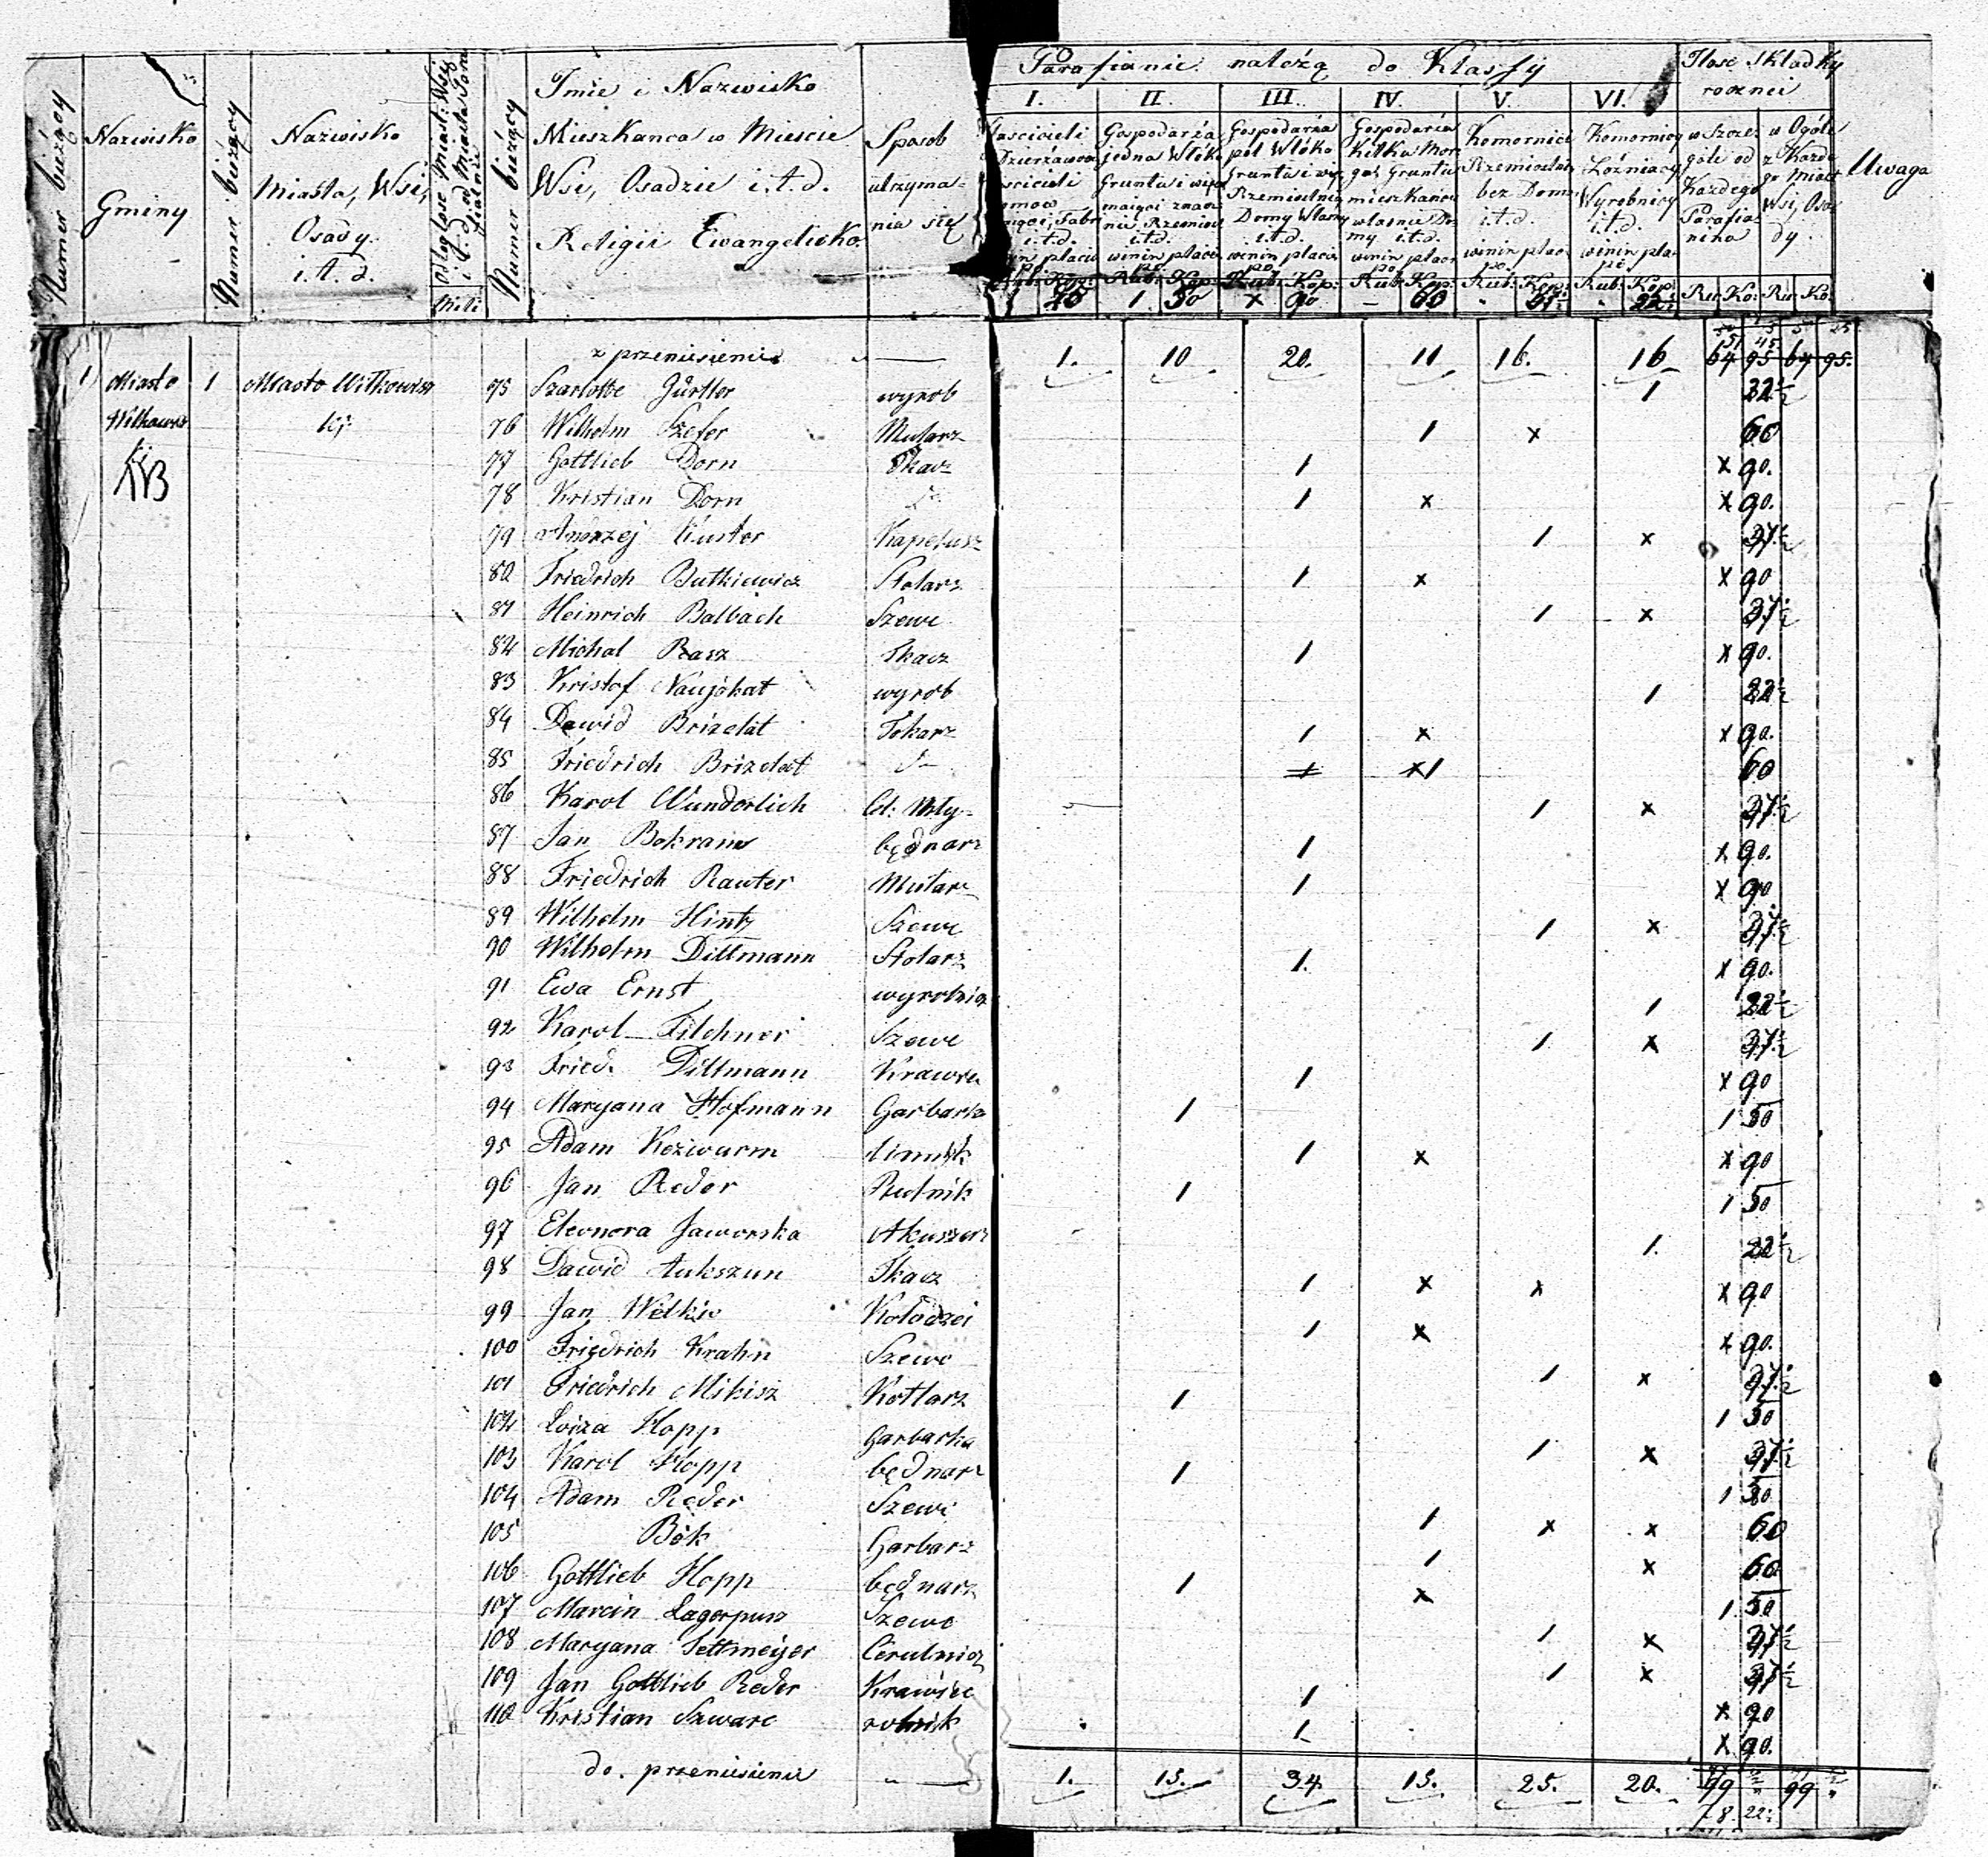 Numer bieżący
Nazwisko Gminy
Numer bieżący
Nazwisko Miasta, Wsi, Osady i. t. d.
Mili
Numer bieżący
Imie i Nazwisko Mieszkańca w Mieście Wsi, Osadzie i. t. d. Religii Ewangelicko
Sposob utrzymania się
Parafianie należą do Klassy
Ilosc Składky rocznei
I. II. III. IV. V. VI.
Gospodarza jedna Włoka Gruntu i więcej
Gospodarza pół Włóko Gruntu i Rzemieslnicy Domy Własny i.t.d. winin płacić po
Gospodarza Kilka Morgów Gruntu mieszkańcy własnie Domy i.t.d. winin płacić po
Komornicei Rzemieslnicy bez Domu i.t.d. winin płac po
Komornicy Łóźniacy Wyrobnicy i.t.d. winin pła po
w szczególe od Każdego Parafianina
w Ogóle z Każdego Miasta Wsi, Osady
Uwaga
Rub: Kop: Rub: Kop: Rub: Kop: Rub: Kop: Rub: Kop: Ru: Ko: Ru: Ko:
1 50 x 90 – 60 22½
z przeniesienia — 1. 10 20. 11 16. 16 64 95 64 95.
1 Miasto Wilkowisk 1 Miasto Wilkowiski 75 Szarlotte Gürtler wyrob 1 22½
76 Wilhelm Szefer Mularz 1 x 60
77 Gottlieb Dorn Tkacz 1 x 90.
78 Kristian Dorn 1 x x 90.
79 Andrzej Kuster Kapelusz 1 x 37½
80 Friedrich Butkiewicz Stolarz 1 x x 90
81 Heinrich Balbach Szewc 1 x 37½
82 Michal Rasz Tkacz 1 x 90.
83 Kristof Naujokat wyrob 1 22½
84 Dawid Brizelat Tokarz 1 x x 90.
85 Friedrich Brizelat 1 x 1 60
86 Karol Wunderlich 1 x 37½
87 Jan Bokrain będnarz 1 x 90.
88 Friedrich Rauter Mularz 1 x 90
89 Wilhelm Hintz Szewc 1 x 37½
90 Wilhelm Dittmann Stolarz 1. x 90.
91 Ewa Ernst wyrobnica 1 22½
92 Karol Filchner Szewc 1 x 37½
93 Fried. Dittmann Krawiec 1 x 90
94 Maryana Hofmann Garbarka 1 1 50
95 Adam Keziwurm 1 x x 90
96 Jan Reder Rolnik 1 1 50
97 Eleonora Jaworska Akuszerz 1. 22½
98 Dawid Aukszun Tkacz 1 x x x 90
99 Jan Welkie Kołodzei 1 x x 90.
100 Friedrich Krahn Szewc 1 x 37½
101 Friedrich Mikisz Kotlarz 1 1 50
102 Loiza Hopp Garbarka 1 x 37½
103 Karol Hopp będnarz 1 1 50
104 Adam Reder Szewc 1 x x 60
105 Bök Garbarz 1 x 60
106 Gottlieb Hopp będnarz 1 x 1 50
107 Marcin Lagerpusz Szewc 1 x 37½
108 Maryana Settmeijer Cerulnicz 1 x 37½
109 Jan Gottlieb Reder Krawiec 1 x 90
110 Kristian Szwarc rolnik 1 x 90.
do. przeniesienia " — 1. 15. 34. 15. 25. 20. 99 99
78. 22½